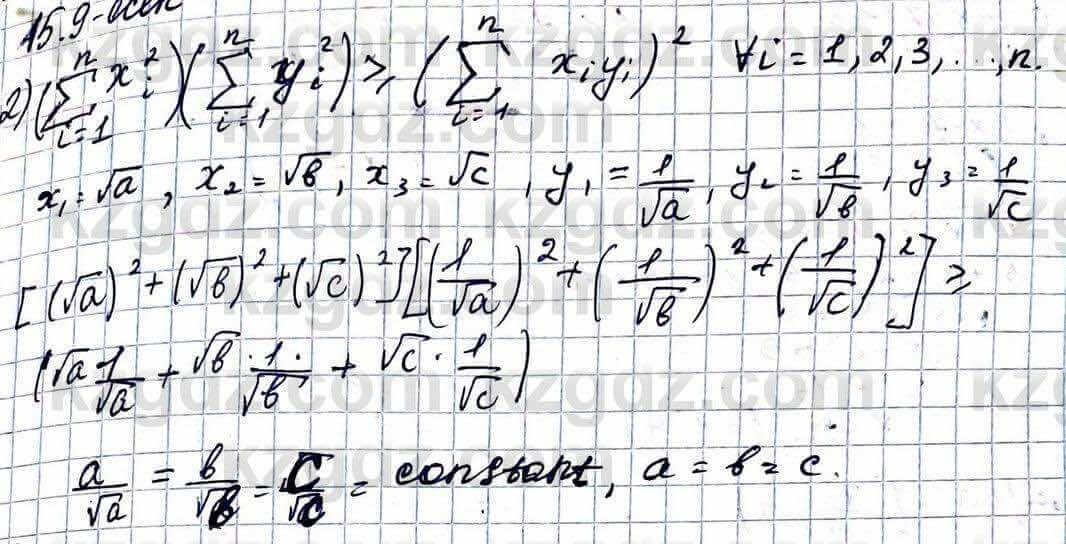 15.9-есеп
2) (∑_{i=1}^{n} x_i^2)(∑_{i=1}^{n} y_i^2) ≥ (∑_{i=1}^{n} x_i y_i)^2 ∀i = 1, 2, 3, ..., n.
x_1 = √a, x_2 = √в, x_3 = √c, y_1 = 1/√a, y_2 = 1/√в, y_3 = 1/√c
[(√a)^2 + (√в)^2 + (√c)^2][(1/√a)^2 + (1/√в)^2 + (1/√c)^2] ≥
(√a 1/√a + √в · 1/√в + √c · 1/√c)
a/√a = в/√в = c/√c = constant, a = в = c.
kzgdz.com